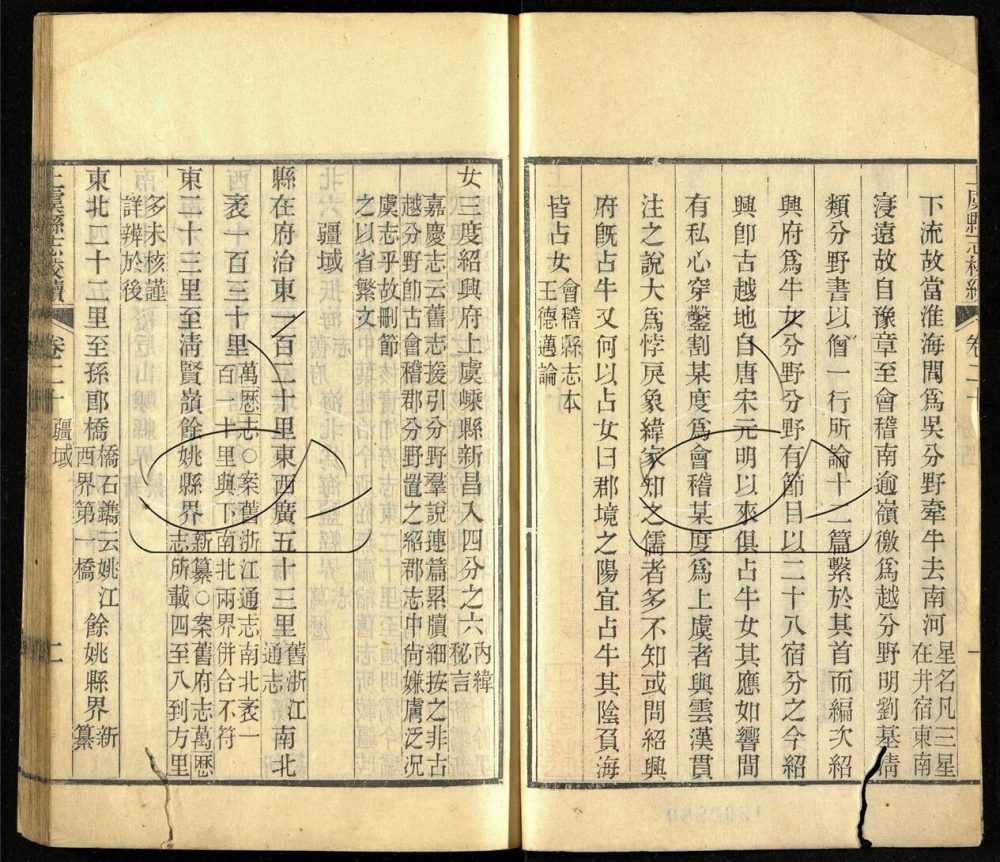 下流故當淮海閒爲吳分野牽牛去南河星名凡三星在井宿東南
寖遠故自豫章至會稽南逾嶺徼爲越分野明劉基清
類分野書以僧一行所論十二篇繫於其首而編次紹
興府爲牛女分野分野有節目以二十八宿分之今紹
興卽古越地自唐宋元明以來俱占牛女其應如響間
有私心穿鑿割某度爲會稽某度爲上虞者與雲漢貫
注之說大爲悖戾象緯家知之儒者多不知或問紹興
府旣占牛又何以占女曰郡境之陽宜占牛其陰負海
皆占女會稽縣志本王德邁論
卷二十
一
女三度紹興府上虞嵊縣新昌入四分之六內緯秘言
嘉慶志云舊志援引分野羣說連篇累牘細按之非古
越分野卽古會稽郡分野置之紹郡志中尙嫌膚泛況
虞志乎故刪節
之以省繁文
疆域
縣在府治東一百二十里東西廣五十三里舊浙江通志南北
袤一百三十里萬歷志○案舊浙江通志南北袤一
百一十里與下南北兩界併合不符
東二十三里至清賢嶺餘姚縣界新纂○案舊府志萬歷
志所載四至八到方里
多未核謹
詳辨於後
東北二十二里至孫郎橋橋石鐫云姚江西界第一橋餘姚縣界新纂
上虞縣志校續
卷二十
疆域
二